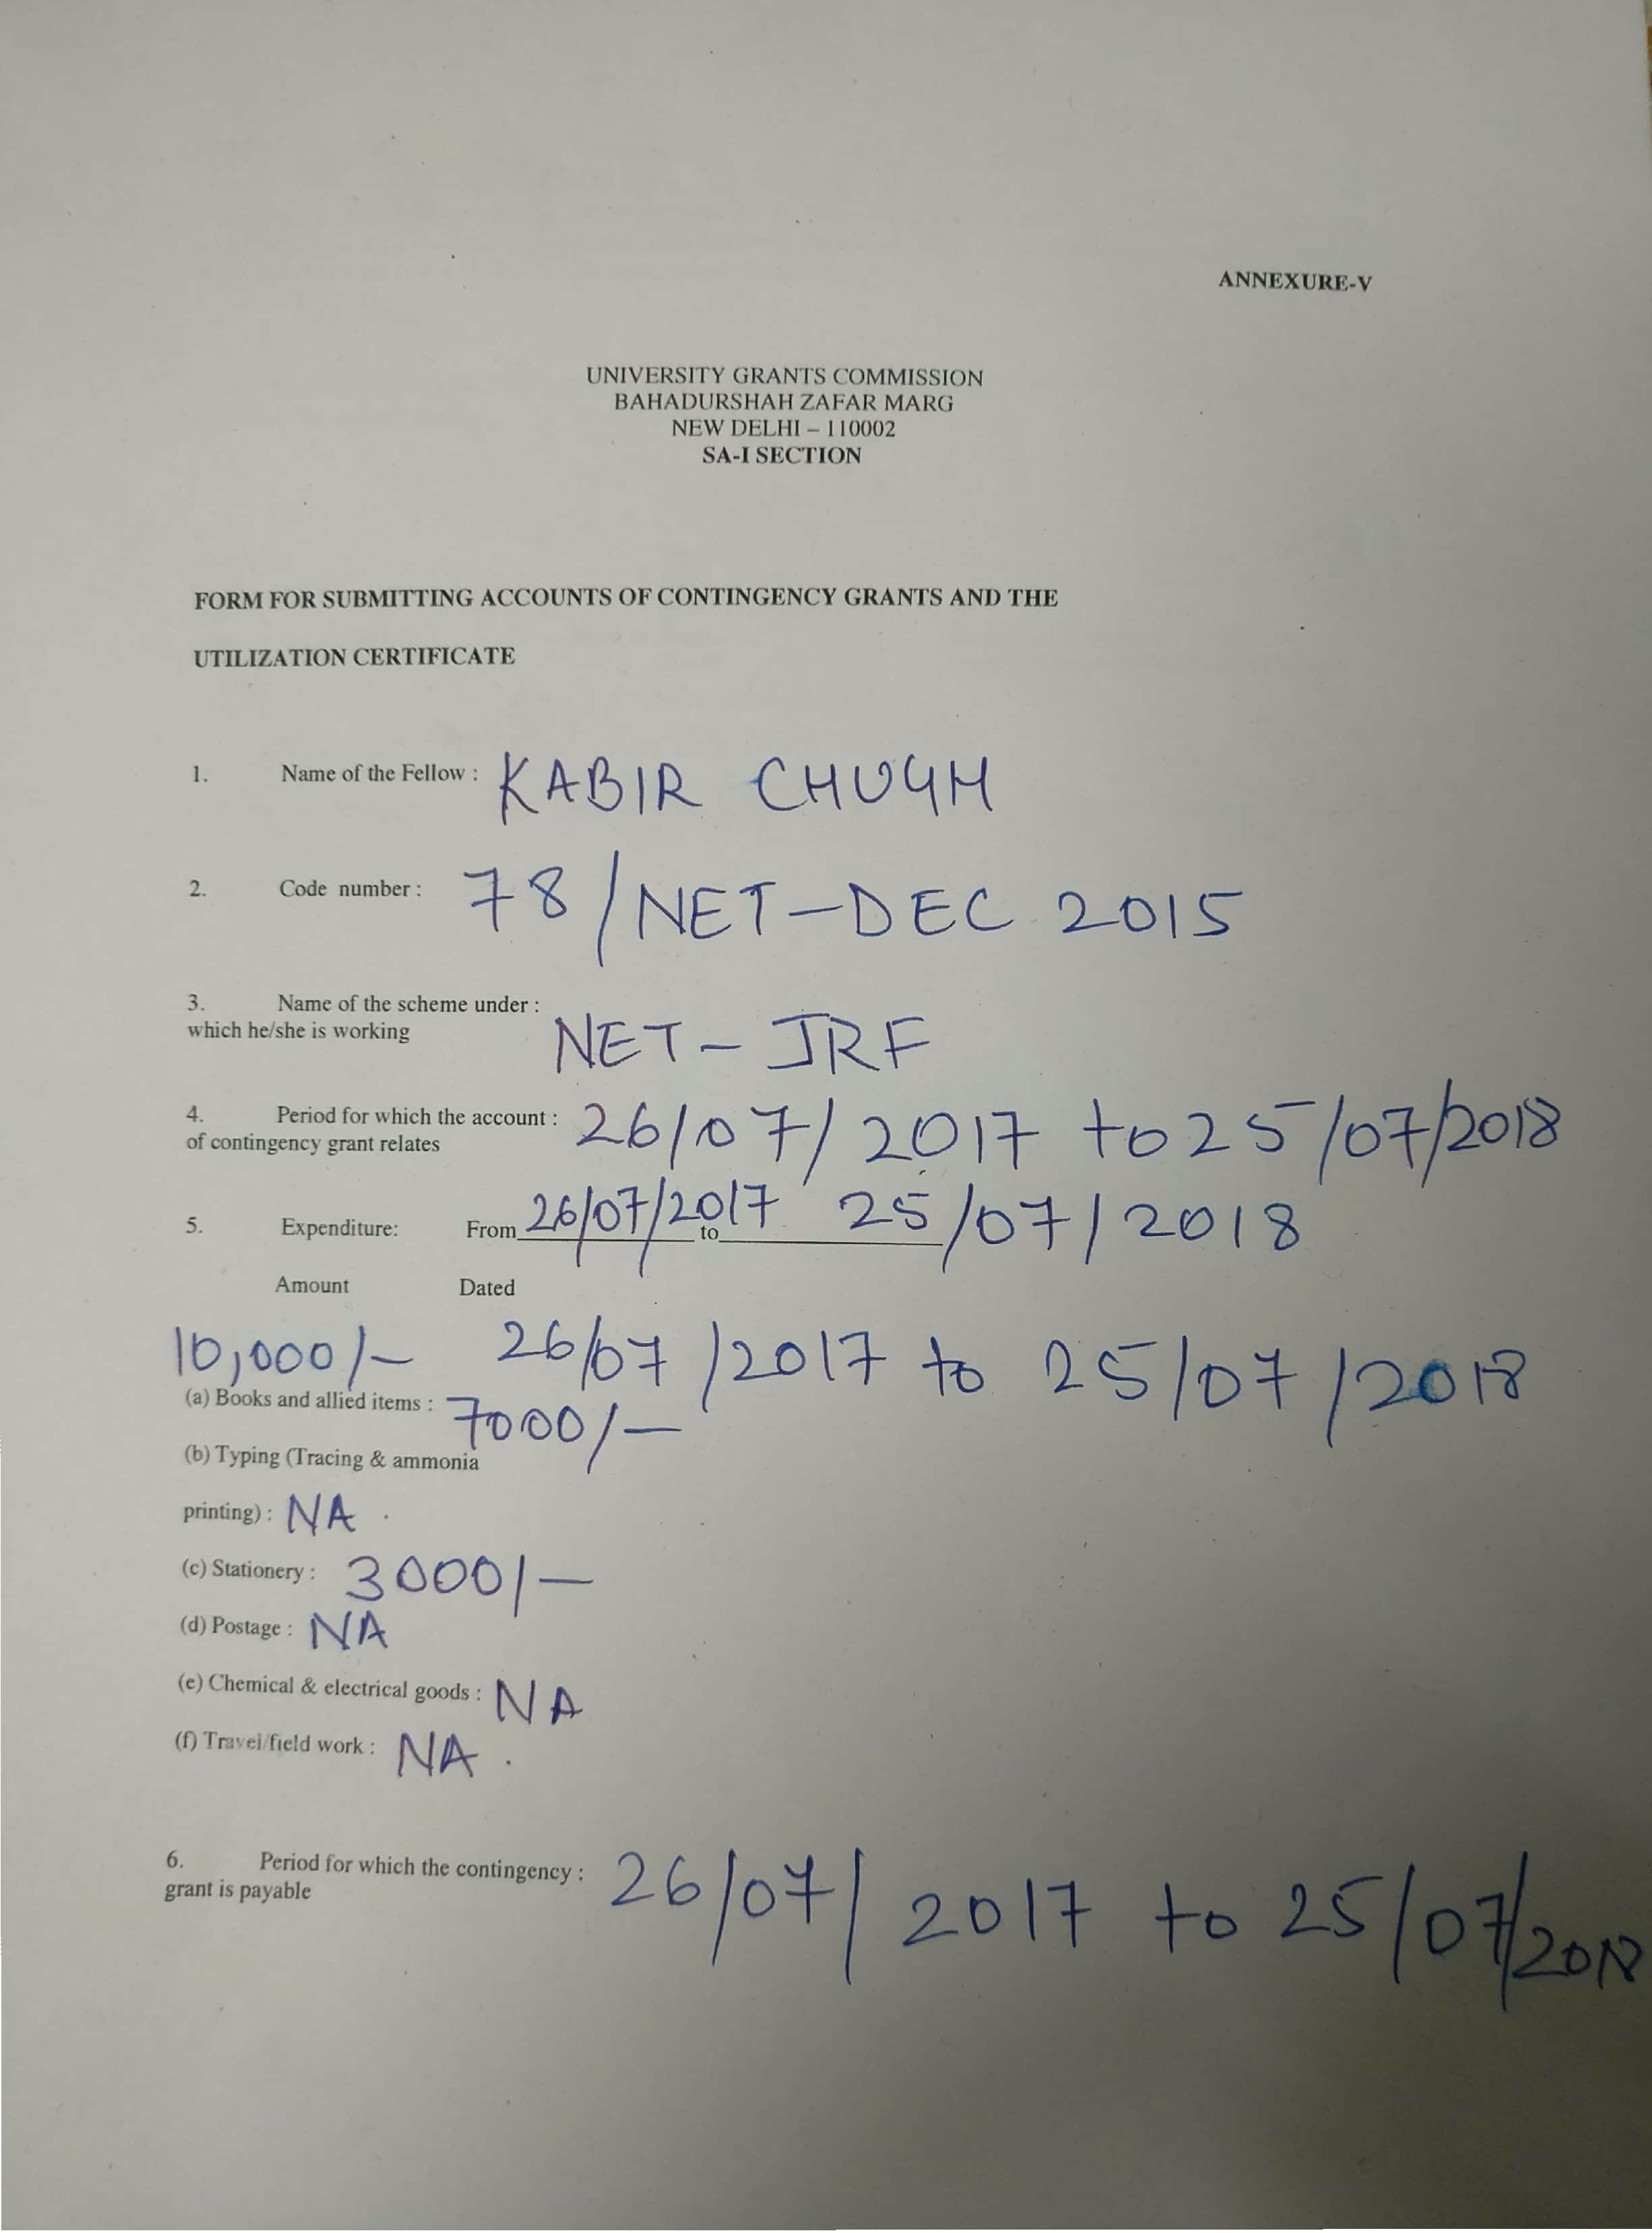 ANNEXURE-V
UNIVERSITY GRANTS COMMISSION
BAHADURSHAH ZAFAR MARG
NEW DELHI – 110002
SA-I SECTION
FORM FOR SUBMITTING ACCOUNTS OF CONTINGENCY GRANTS AND THE
UTILIZATION CERTIFICATE
1. Name of the Fellow : KABIR CHUGH
2. Code number : 78/NET-DEC 2015
3. Name of the scheme under :
which he/she is working NET-JRF
4. Period for which the account : 26/07/2017 to 25/07/2018
of contingency grant relates
5. Expenditure: From 26/07/2017 to 25/07/2018
Amount Dated
10,000/- 26/07/2017 to 25/07/2018
(a) Books and allied items : 7000/-
(b) Typing (Tracing & ammonia
printing) : NA.
(c) Stationery : 3000/-
(d) Postage : NA
(e) Chemical & electrical goods : NA
(f) Travel/field work : NA.
6. Period for which the contingency : 26/07/2017 to 25/07/2018
grant is payable